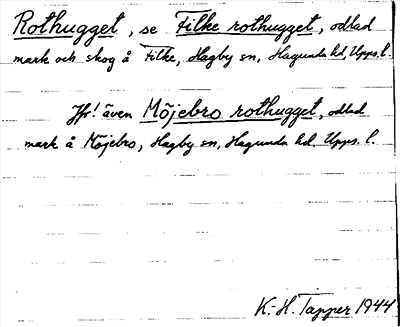 Rothugget, se Filke rothugget, odlad
mark och skog å Filke, Hagby sn, Hagunda hd, Upps. l.
Jfr! även Möjebro rothugget, odlad
mark å Möjebro, Hagby sn, Hagunda hd, Upps. l.
K.-H. Tapper 1944